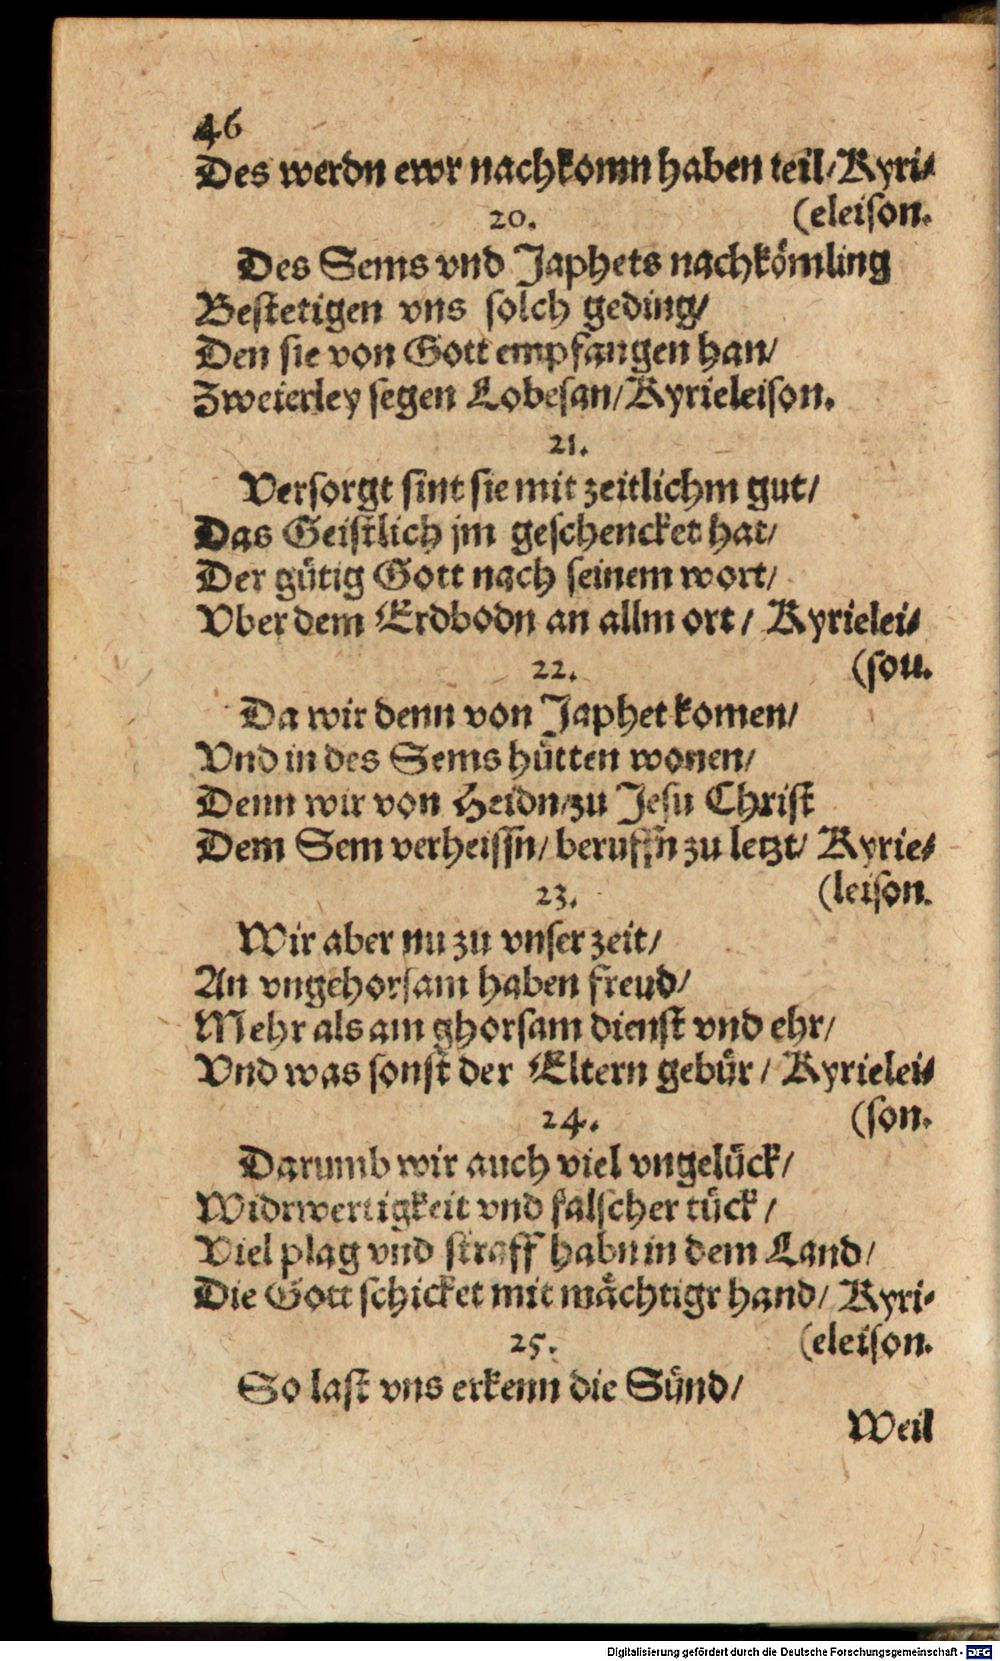 46
Des werdn ewr nachkomn haben teil/ Kyri⸗
20. (eleison.
Des Sems vnd Japhets nachkömling
Bestetigen vns solch geding/
Den sie von Gott empfangen han/
Zweierley segen Lobesan/ Kyrieleison.
21.
Versorgt sint sie mit zeitlichm gut/
Das Geistlich jm geschencket hat/
Der gütig Gott nach seinem wort/
Vber dem Erdbodn an allm ort/ Kyrielei⸗
22. (sou.
Da wir denn von Japhet komen/
Vnd in des Sems hütten wonen/
Denn wir von Heidn/ zu Jesu Christ
Dem Sem verheissn/ beruffn zu letzt/ Kyrie⸗
23. (leison.
Wir aber nu zu vnser zeit/
An vngehorsam haben freud/
Mehr als am ghorsam dienst vnd ehr/
Vnd was sonst der Eltern gebür/ Kyrielei⸗
24. (son.
Darumb wir auch viel vngelück/
Widrwertigkeit vnd falscher tück/
Viel plag vnd straff habn in dem Land/
Die Gott schicket mit mächtigr hand/ Kyri⸗
25. (eleison.
So last vns erkenn die Sünd/
Weil
Digitalisierung gefördert durch die Deutsche Forschungsgemeinschaft - DFG